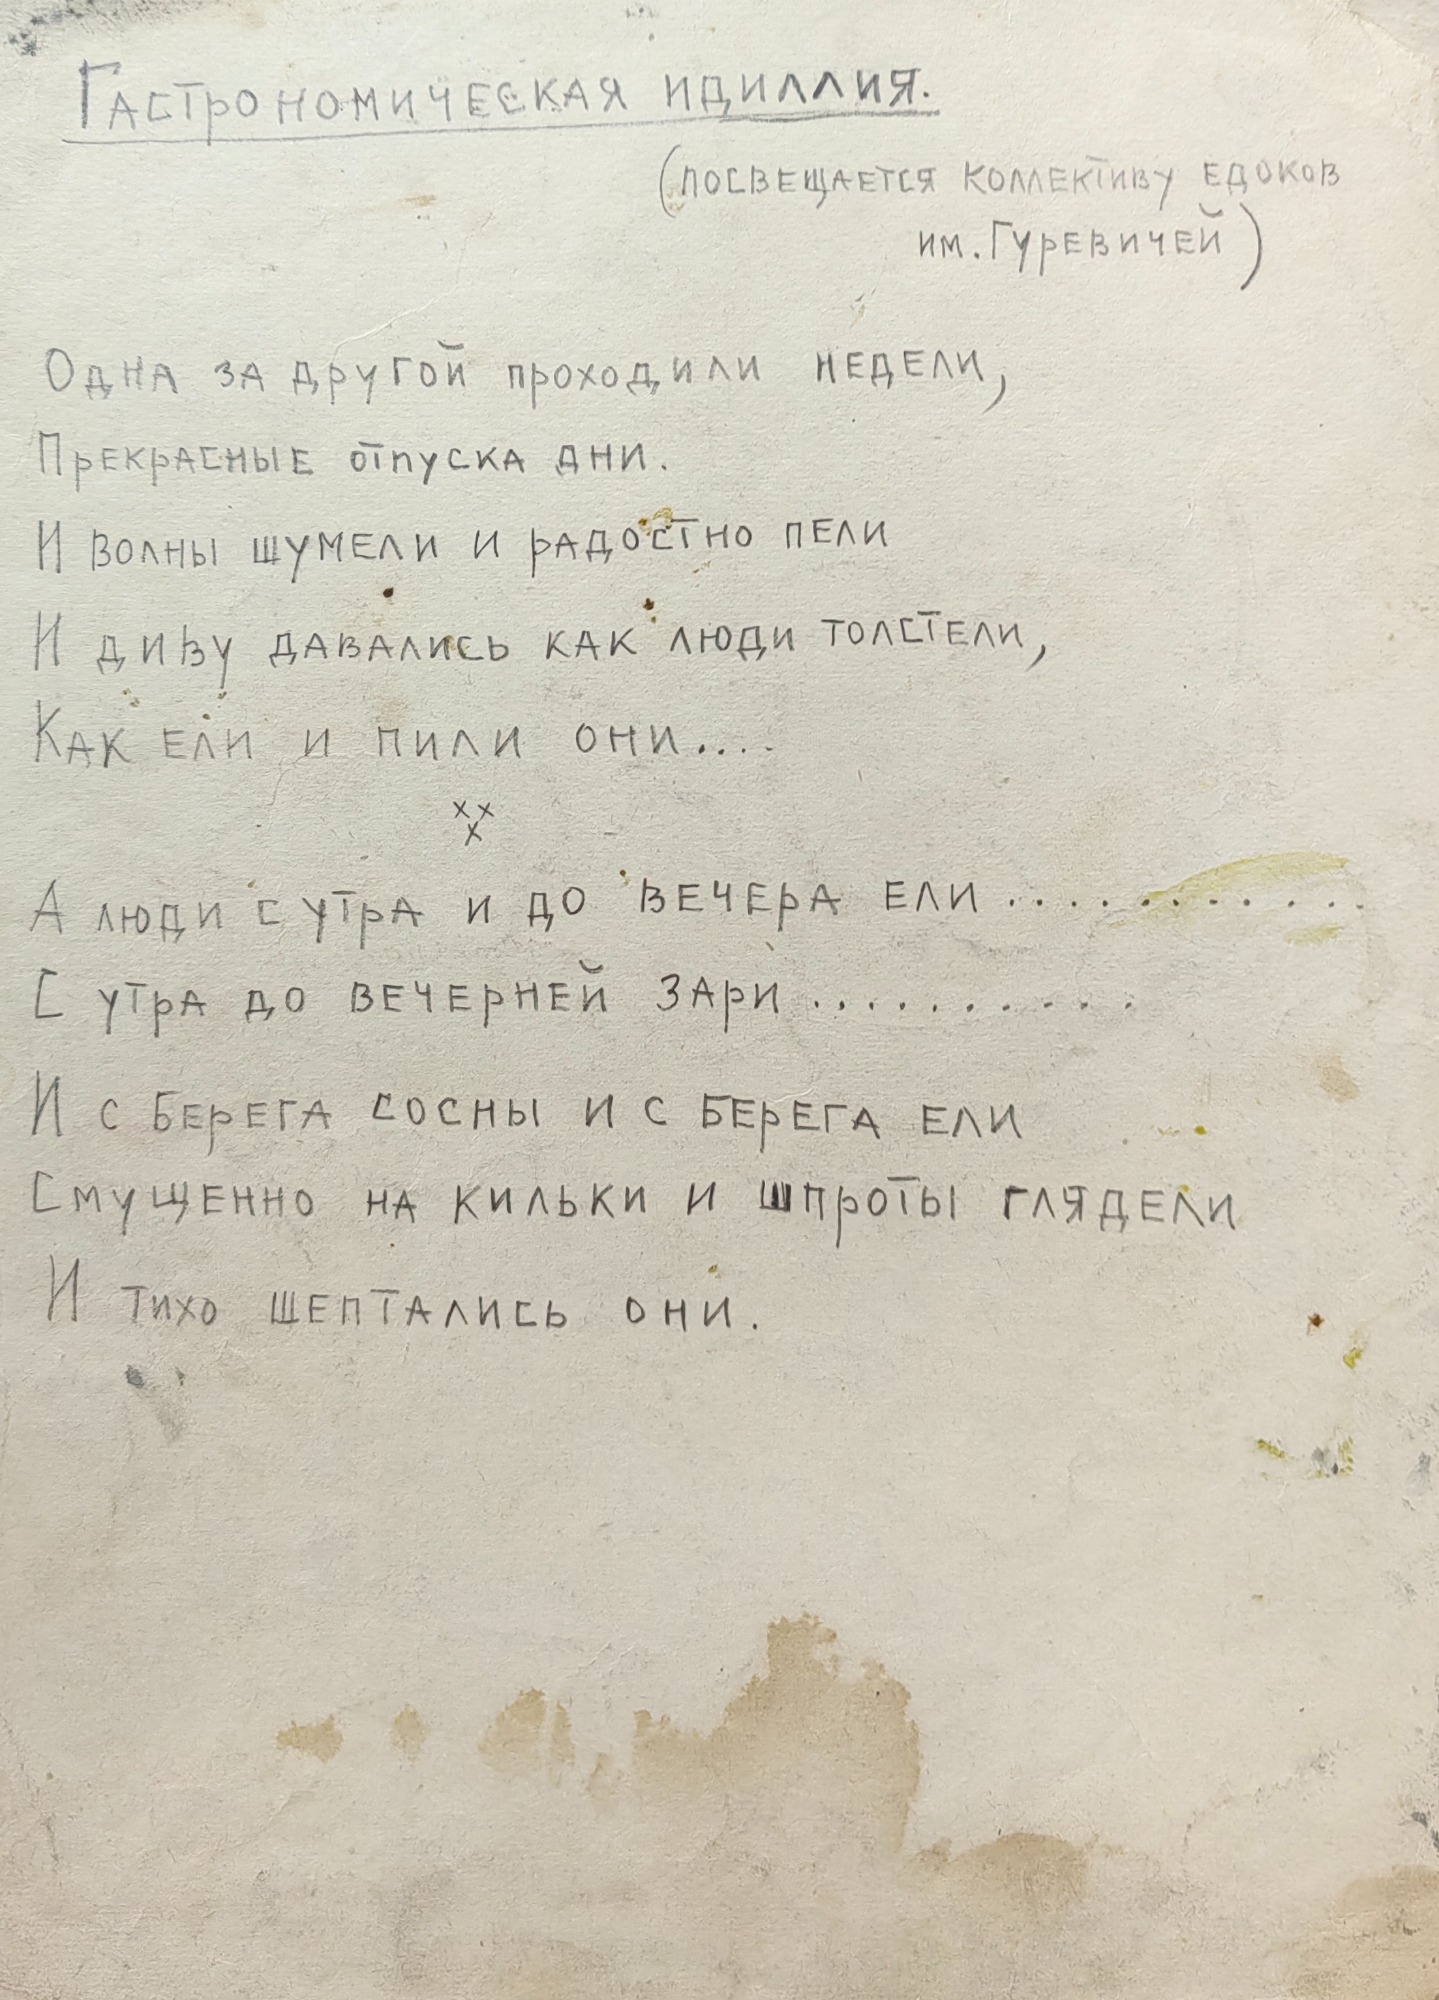 Гастрономическая идиллия.
(посвещается коллективу едоков
им. Гуревичей)
Одна за другой проходили недели,
Прекрасные отпуска дни.
И волны шумели и радостно пели
И диву давались как люди толстели,
Как ели и пили они....
х х
х
А люди с утра и до вечера ели ............
С утра до вечерней зари ...........
И с берега сосны и с берега ели
Смущенно на кильки и шпроты глядели
И тихо шептались они.